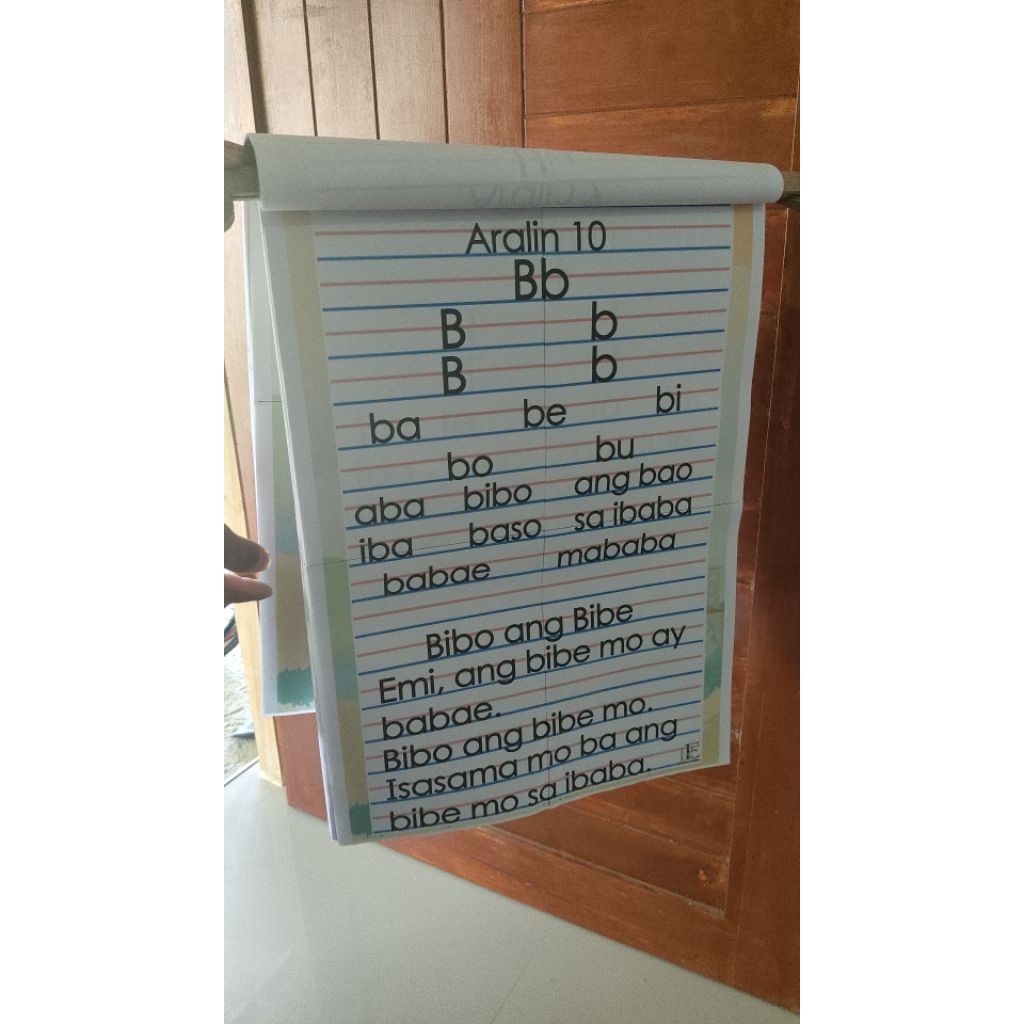 Aralin 10
Bb
B b
B b
ba be bi
bo bu
aba bibo ang bao
iba baso sa ibaba
babae mababa
Bibo ang Bibe
Emi, ang bibe mo ay
babae.
Bibo ang bibe mo.
Isasama mo ba ang
bibe mo sa ibaba.